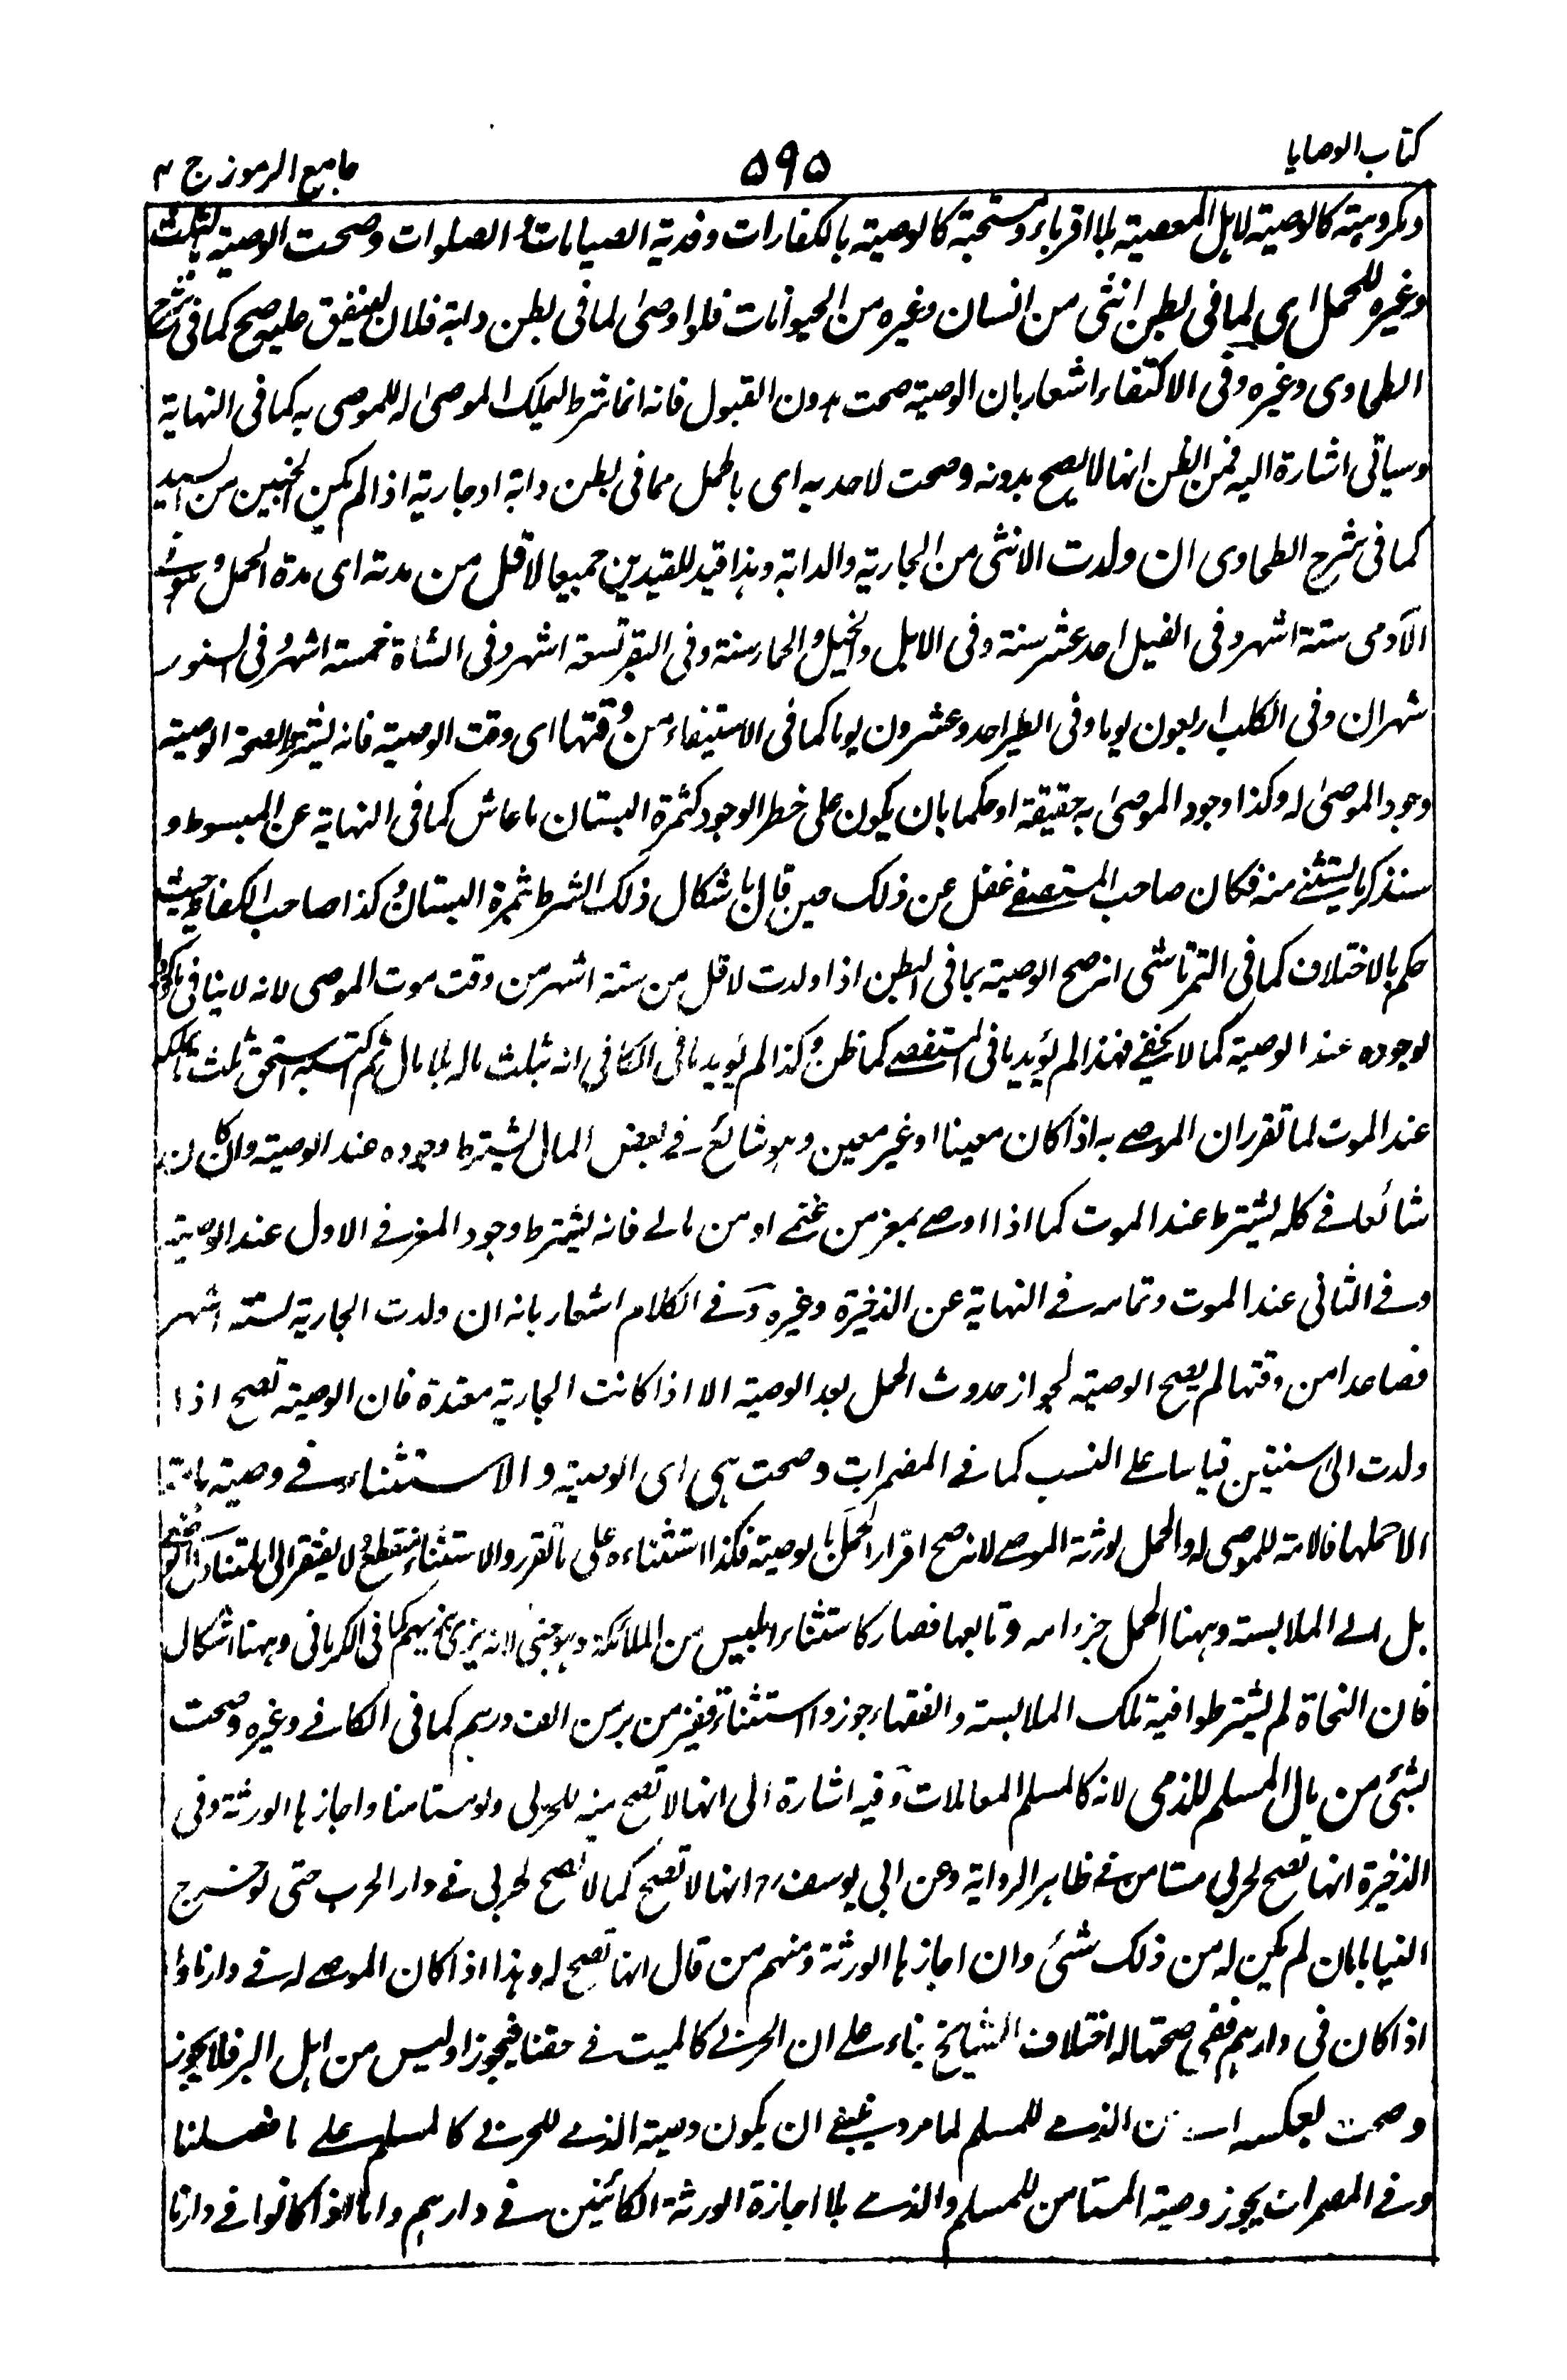 كتاب الوصايا
۵۹۵
جامع الرموز ج ۴
ومكروهية كالوصية لاهل المعصية بلا اقرباء ومستحبة كالوصية بالكفارات وفدية الصيامات و الصلوات وصحت الوصية بالثلث
وغيره للحمل اى لما فى بطن انثى من انسان وغيره من الحيوانات فلو اوصى لما فى بطن دابة فلان لينفق عليه صح كما فى شرح
الطحاوى وغيره وفى الاكتفاء اشعار بان الوصية صحت بدون القبول فانه انما شرط ليملك الموصى له للموصى به كما فى النهاية
وسياتى اشارة اليه فمن الظن انها لا يصح بدونه وصحت لاحد به اى بالحمل مما فى بطن دابة او جارية اذا لم يكن الجنين من السيد
كما فى شرح الطحاوى ان ولدت الانثى من الجارية والدابة وهذا قيد للقيدين جميعا لاقل من مدته اى مدة الحمل وهو فى
الآدمى ستة اشهر وفى الفيل احد عشر سنة وفى الابل والخيل والحمار سنة وفى البقر تسعة اشهر وفى الشاة خمسة اشهر وفى السنور
شهران وفى الكلب اربعون يوما وفى الطير احد وعشرون يوما كما فى الاستيفاء من وقتها اى وقت الوصية فانه يشترط لصحة الوصية
وجود الموصى له وكذا وجود الموصى به حقيقة او حكما بان يكون على خطر الوجود كثمرة البستان ما عاش كما فى النهاية عن المبسوط و
سنذكر ما يستثنى منه فكان صاحب المستصفى غفل عن ذلك حين قال باشكال ذلك الشرط بثمرة البستان وكذا صاحب الكفاية حيث
حكم بالاختلاف كما فى التمرتاشى انه صح الوصية بما فى البطن اذا ولدت لاقل من ستة اشهر من وقت موت الموصى لانه لا ينافى
لوجوده عند الوصية كما لا يخفى فهذا لم يؤيد ما فى المستصفى كما ظن وكذا لم يؤيد ما فى الكافى انه بثلث ماله بلا مال ثم اكتسبه استحق ثلث ما يملكه
عند الموت لما تقرر ان الموصى به اذا كان معينا او غير معين وهو شائع فى بعض المال يشترط وجوده عند الوصية وان كان
شائعا فى كله يشترط عند الموت كما اذا اوصى بمعز من غنمى او من مالى فانه يشترط وجود المعز فى الاول عند الوصية
وفى الثانى عند الموت وتمامه فى النهاية عن الذخيرة وغيره وفى الكلام اشعار بانه ان ولدت الجارية لستة اشهر
فصاعدا من وقتها لم يصح الوصية لجواز حدوث الحمل بعد الوصية الا اذا كانت الجارية معتدة فان الوصية تصح اذا
ولدت الى سنتين قياسا على النسب كما فى المضمرات وصحت هى اى الوصية و الاستثناء فى وصية بامة
الا حملها فالامة للموصى له والحمل لورثة الموصى لانه صح اقرار الحمل بالوصية فكذا استثناءه على ما تقرر والاستثناء منقطع ولا يفتقر الى
بل الى الملابسة وههنا الحمل جزء امه وتابعها فصار كاستثناء ابليس من الملائكة وهو جنى لانه يزى بزيهم كما فى الكرمانى وههنا اشكال
فان النحاة لم يشترطوا فيه تلك الملابسة والفقهاء جوزوا استثناء قفيز من بر من الف درهم كما فى الكافى وغيره وصحت
بشئ من مال المسلم للذمى لانه كالمسلم المعاملات وفيه اشارة الى انها لا تصح منه للحربى ولو مستامنا واجازها الورثة وفى
الذخيرة انها تصح لحربى مستامن فى ظاهر الرواية وعن ابى يوسف رح انها لا تصح كما لا تصح لحربى فى دار الحرب حتى لو خرج
الينا بامان لم يكن له من ذلك شئ وان اجازها الورثة ومنهم من قال انها تصح له وهذا اذا كان الموصى له فى دارنا واما
اذا كان فى دارهم ففى صحتها له اختلاف المشايخ بناء على ان الحربى كالميت فى حقنا فيجوز او ليس من اهل البر فلا يجوز
وصحت بعكسه اى من الذمى للمسلم لما مر وينبغى ان يكون وصية الذمى للحربى كالمسلم على ما فصلنا
وفى المضمرات يجوز وصية المستامن للمسلم والذمى بلا اجازة الورثة الكائنين فى دارهم واما اذا كانوا فى دارنا